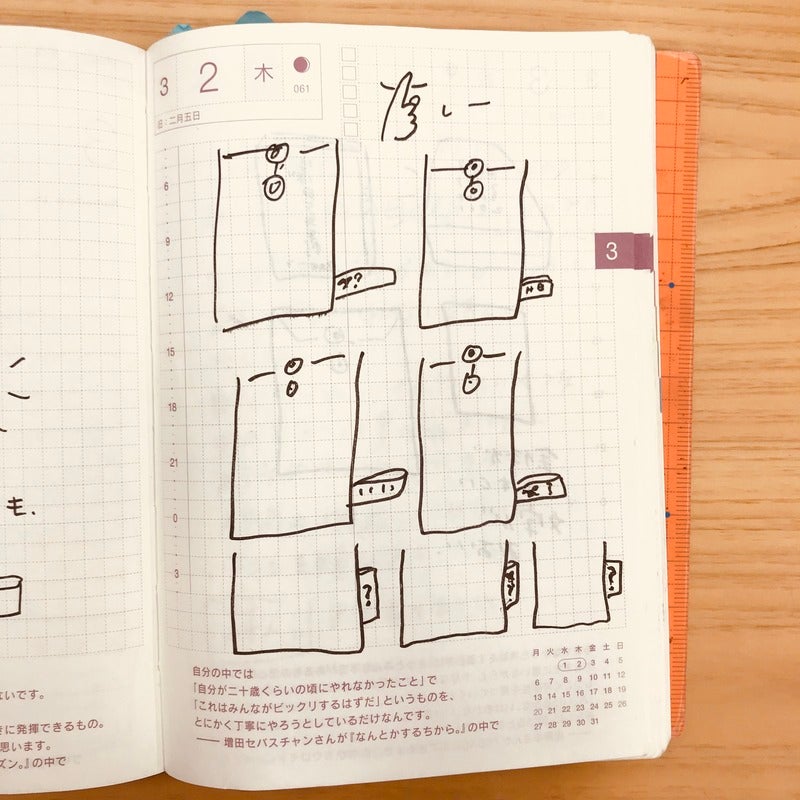 3 2 木
061
二月五日
6
9
12
15
18
21
0
3
3
?
?
も.
いです。
に発揮できるもの。
思います。
ズン。』の中で
自分の中では
「自分が二十歳くらいの頃にやれなかったこと」で
「これはみんながビックリするはずだ」というものを、
とにかく丁寧にやろうとしているだけなんです。
—— 増田セバスチャンさんが『なんとかするちから。』の中で
月 火 水 木 金 土 日
1 2 3 4 5
6 7 8 9 10 11 12
13 14 15 16 17 18 19
20 21 22 23 24 25 26
27 28 29 30 31